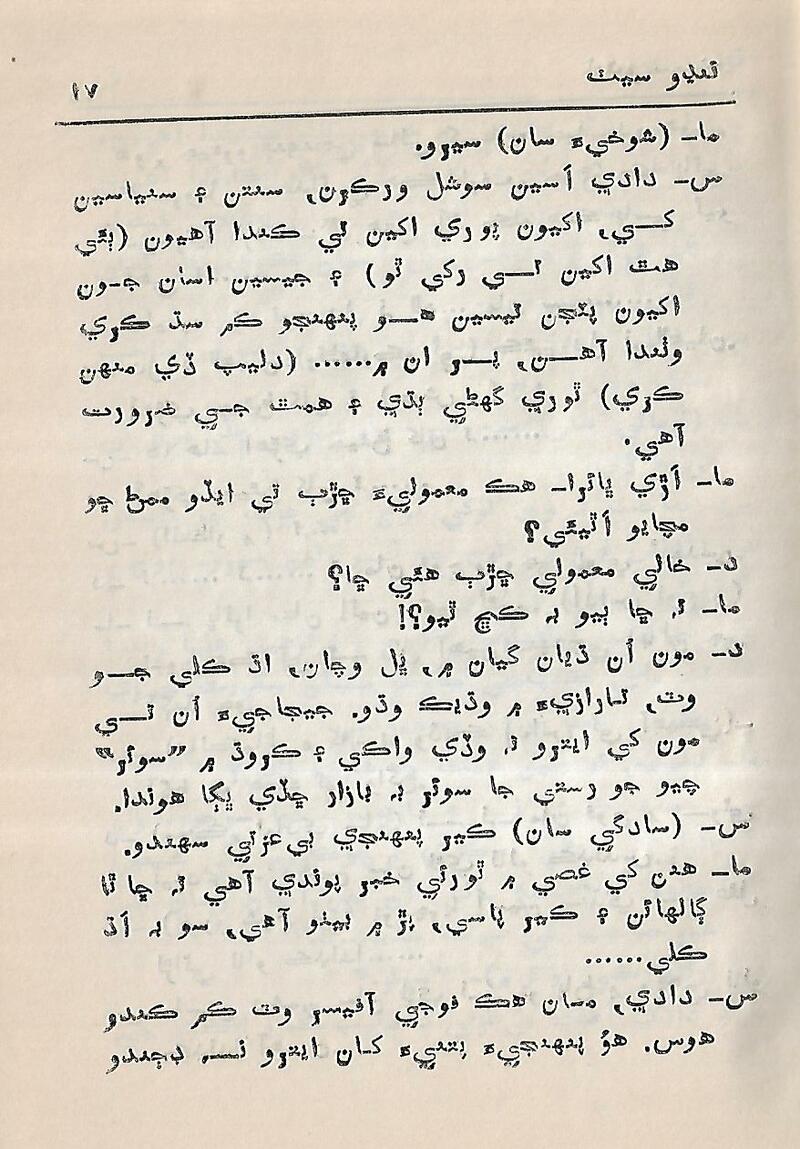 ٿڌو سيٽ ١٧
ما۔ (شوخيءَ سان) سيرو.
س۔ دادي اَسين سوشل ورڪرن، سنتن ۽ سنياسين
کي، اکيون پوري اکين تي ڪندا آهيون (ٻئي
هٿ اکين تي رکي ٿو) ۽ جيسين اسان جون
اکيون پٽجن تيسين هو پنهنجو ڪم سڌ ڪري
وٺندا آهن، پر ان ۾...... (دليپ ڏي منهن
ڪري) ٿوري گهڻي ٻڌي ۽ همت جي ضرورت
آهي.
ما۔ اَڙي ڀائرا۔ هڪ معموليءَ ڇڙٻ تي ايڏو ممڻ ڇو
مچايو اَٿيئي؟
د۔ خالي معمولي ڇڙٻ هئي ڇا؟
ما۔ ته ڇا ٻيو به ڪڇ ٿيو؟!
د۔ مون اُن ڌيان گيان ۾، ڀل وچان، اڌ ڪلي جو
وٽ، تارازيءَ ۾ وڌيڪ وڌو. جيجاجيءَ اُن تي
مون کي ايترو ته وڏي واڪي ۽ ڪروڌ ۾ ”سوئر“
چيو جو رستي جا سوئر به بازار ڇڏي ڀڳا هوندا.
س۔ (سادگي سان) ڪير پنهنجي بي‌عزتي سهندو.
ما۔ هنن کي غصي ۾ ٿورئي خبر پوندي آهي ته ڇا ٿا
ڳالهائن ۽ ڪير پاسي، ٻڙ ۾ بيٺو آهي، سو به اَڌ
ڪلي......
س۔ دادي، مان هڪ فوجي آفيسر وٽ ڪم ڪندو
هوس. هوُ پنهنجيءَ پتنيءَ کان ايترو نه ڊڄندو